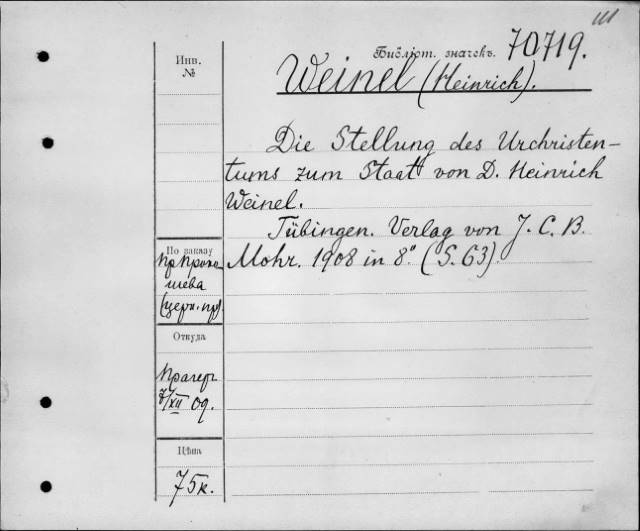 Ш
Библіот. значекъ. 70719.
Инв.
№
Weinel (Heinrich).
Die Stellung des Urchristen-
tums zum Staat von D. Heinrich
Weinel.
Tübingen. Verlag von J. C. B.
Mohr. 1908 in 8°. (S. 63).
По заказу
пр. Прока-
шева
(церк. пр).
Откуда
Прагеръ
7/XII 09.
Цѣна
75к.